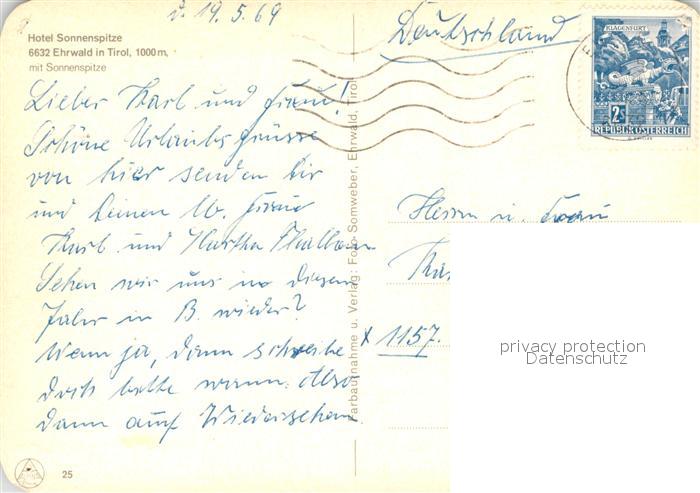 d. 19.5.69
Hotel Sonnenspitze
6632 Ehrwald in Tirol, 1000 m,
mit Sonnenspitze
Deutschland
KLAGENFURT
2S
REPUBLIK ÖSTERREICH
Lieber Karl und Frau!
Schöne Urlaubsgrüsse
von hier senden Dir
und Deiner lb. Frau
Karl und Martha
Sehen wir uns in diesem
Jahr in B. wieder?
Wenn ja, dann schreibe
doch bitte wann. Also
dann auf Wiedersehen
Farbaufnahme u. Verlag: Foto Somweber, Ehrwald, Tirol
Herrn u. Frau
1157.
privacy protection
Datenschutz
25